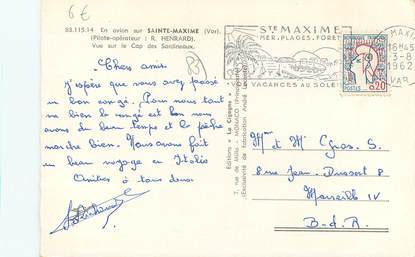 6€
83.115.14 En avion sur SAINTE-MAXIME (Var).
(Pilote-opérateur : R. HENRARD).
Vue sur le Cap des Sardineaux.
Chers amis
J'espère que vous avez passé
un bon congé. Pour nous tout
va bien le congé est bon nous
avons du beau temps et la pêche
marche bien. Nous avons fait
un beau voyage en Italie
Amitiés à tous deux.
Editions « La Cigogne »
7, rue de Millo - MONACO (Principauté)
(Exclusivité de fabrication André
STE MAXIME
MER, PLAGES, FORET
VOS VACANCES AU SOLEIL
MAXIME
16H45
3-8
1962
VAR
POSTES
0,20
Mme et Mr Gros. S.
8 rue Jean
Marseille IV
B-d-R